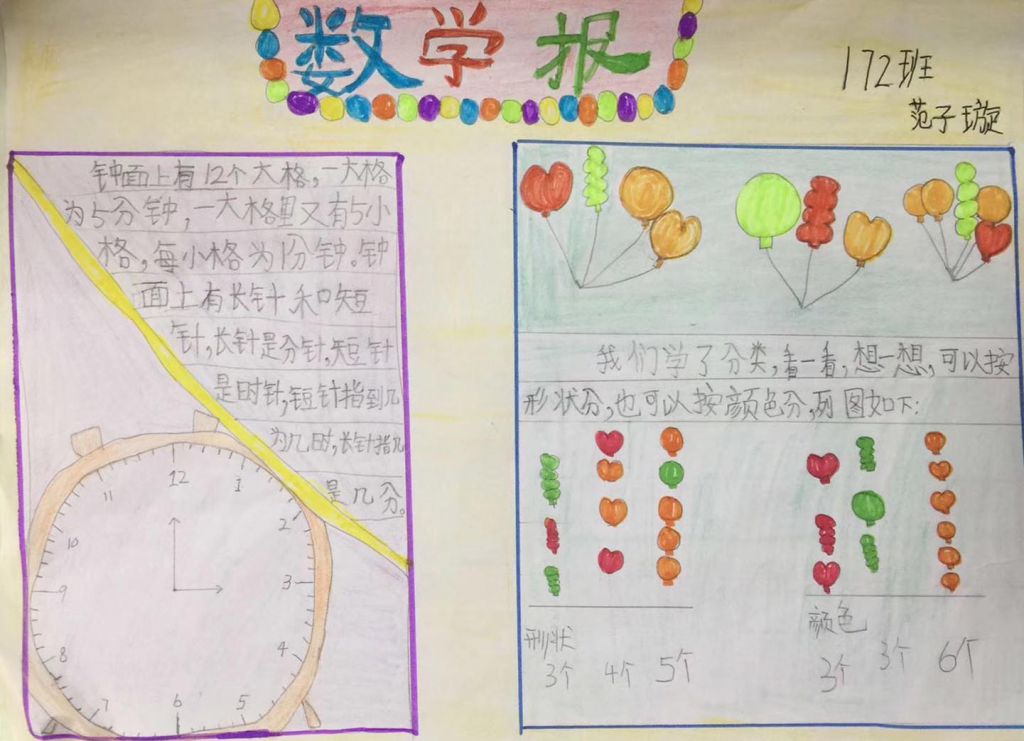 数学报
172班
范子璇
钟面上有12个大格,一大格
为5分钟,一大格里又有5小
格,每小格为1分钟。钟
面上有长针和短
针,长针是分针,短针
是时针,短针指到几
为几时,长针指几
是几分。
12
1
2
3
4
5
6
7
8
9
10
11
我们学了分类,看一看,想一想,可以按
形状分,也可以按颜色分,列图如下:
形状
3个 4个 5个
颜色
3个 3个 6个